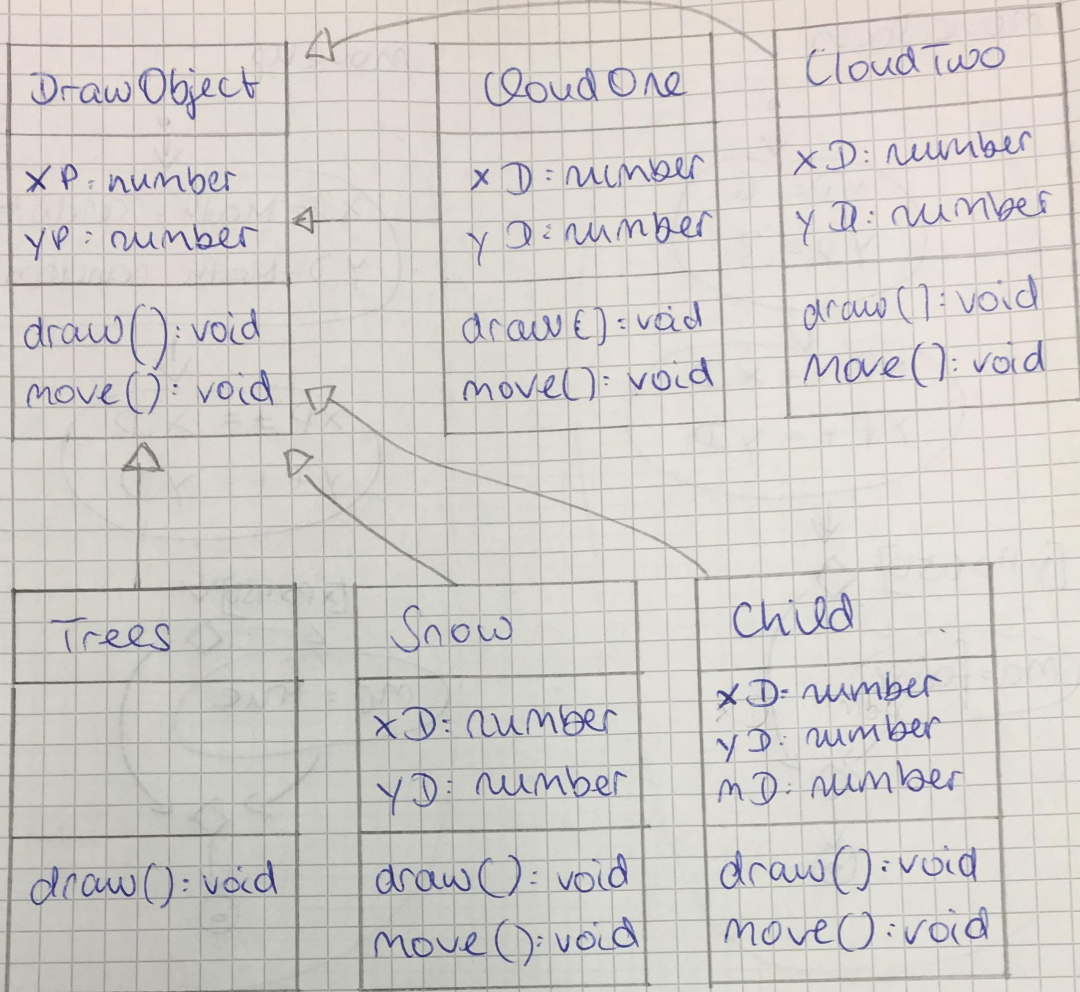 DrawObject
xP: number
yP: number
draw(): void
move(): void
CloudOne
xD: number
yD: number
draw(): void
move(): void
CloudTwo
xD: number
yD: number
draw(): void
move(): void
Trees
draw(): void
Snow
xD: number
yD: number
draw(): void
move(): void
Child
xD: number
yD: number
nD: number
draw(): void
move(): void